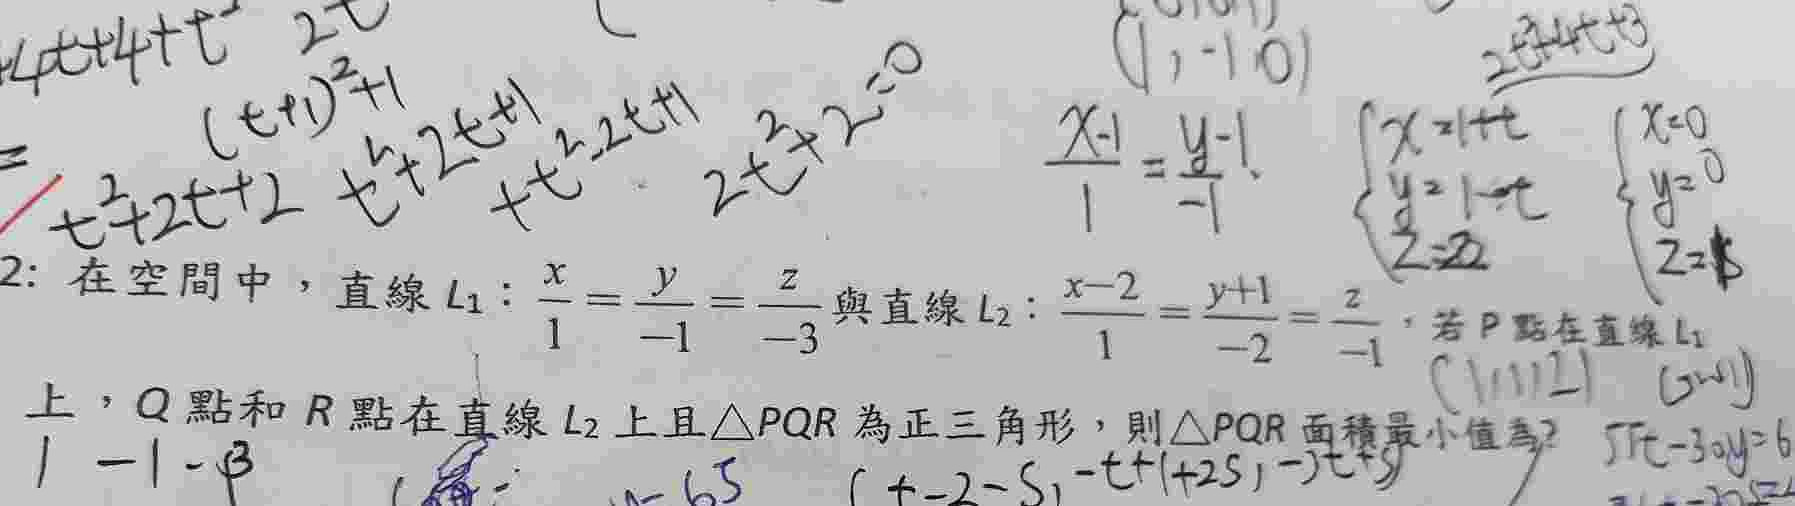 +4t+4+t² 2t
(1,-1,0)
2t²+4t+3
(t+1)²+1
=
t²+2t+2
t²+2t+1
+t²-2t+1
2t²+2=0
x-1/1 = y-1/-1
{x=1+t
y=1-t
z=2
{x=0
y=0
z=s
2: 在空間中，直線 L₁：x/1 = y/-1 = z/-3 與直線 L₂：x-2/1 = y+1/-2 = z/-1，若 P 點在直線 L₁
上，Q 點和 R 點在直線 L₂ 上且△PQR 為正三角形，則△PQR 面積最小值為?
1 -1 -3
-6s
(t-2-s, -t+1+2s, -3t+s)